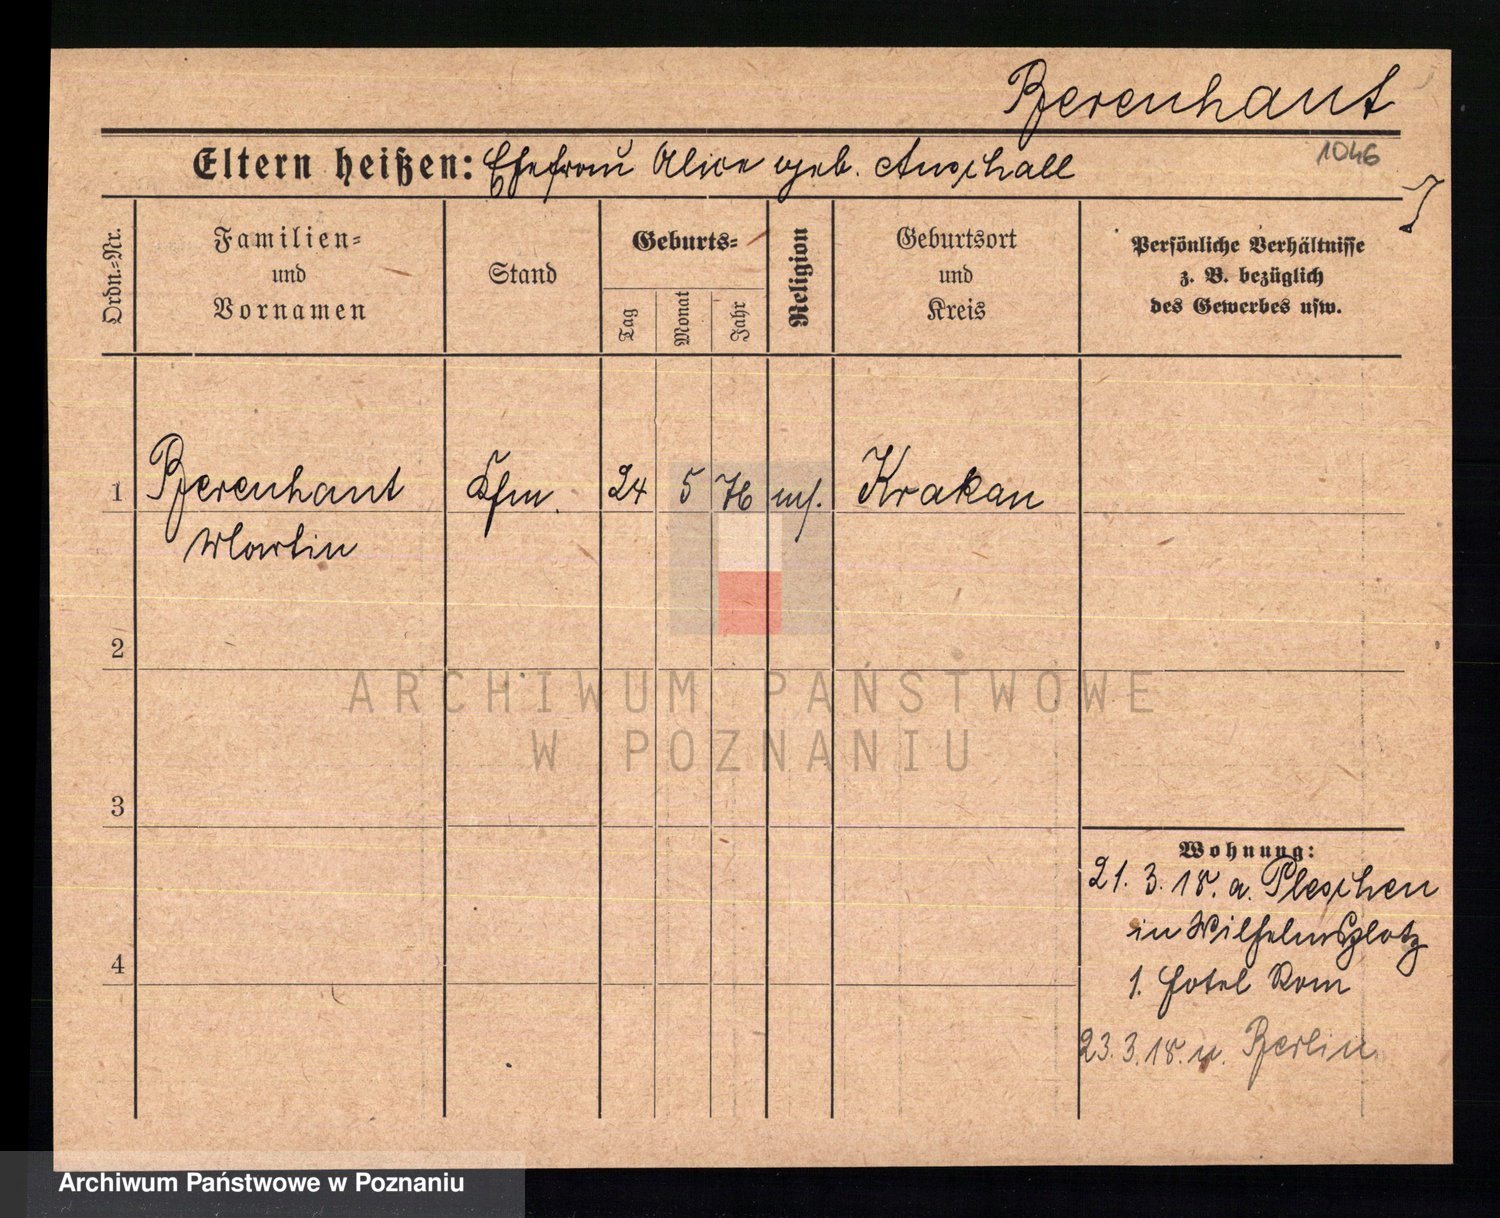 Berenhaut
1046
Eltern heißen: Ehefrau Alice geb. Auschall
Ordn.-Nr.
Familien-
und
Vornamen
Stand
Geburts-
Tag
Monat
Jahr
Religion
Geburtsort
und
Kreis
Persönliche Verhältnisse
z. B. bezüglich
des Gewerbes usw.
1 Berenhaut Kfm. 24 5 76 mos. Krakau
Martin
2
ARCHIWUM PAŃSTWOWE
W POZNANIU
3
Wohnung:
21. 3. 18. a. Pleschen
in Wilhelmsplatz
4
1. Hotel Rom
23. 3. 18. n. Berlin
Archiwum Państwowe w Poznaniu